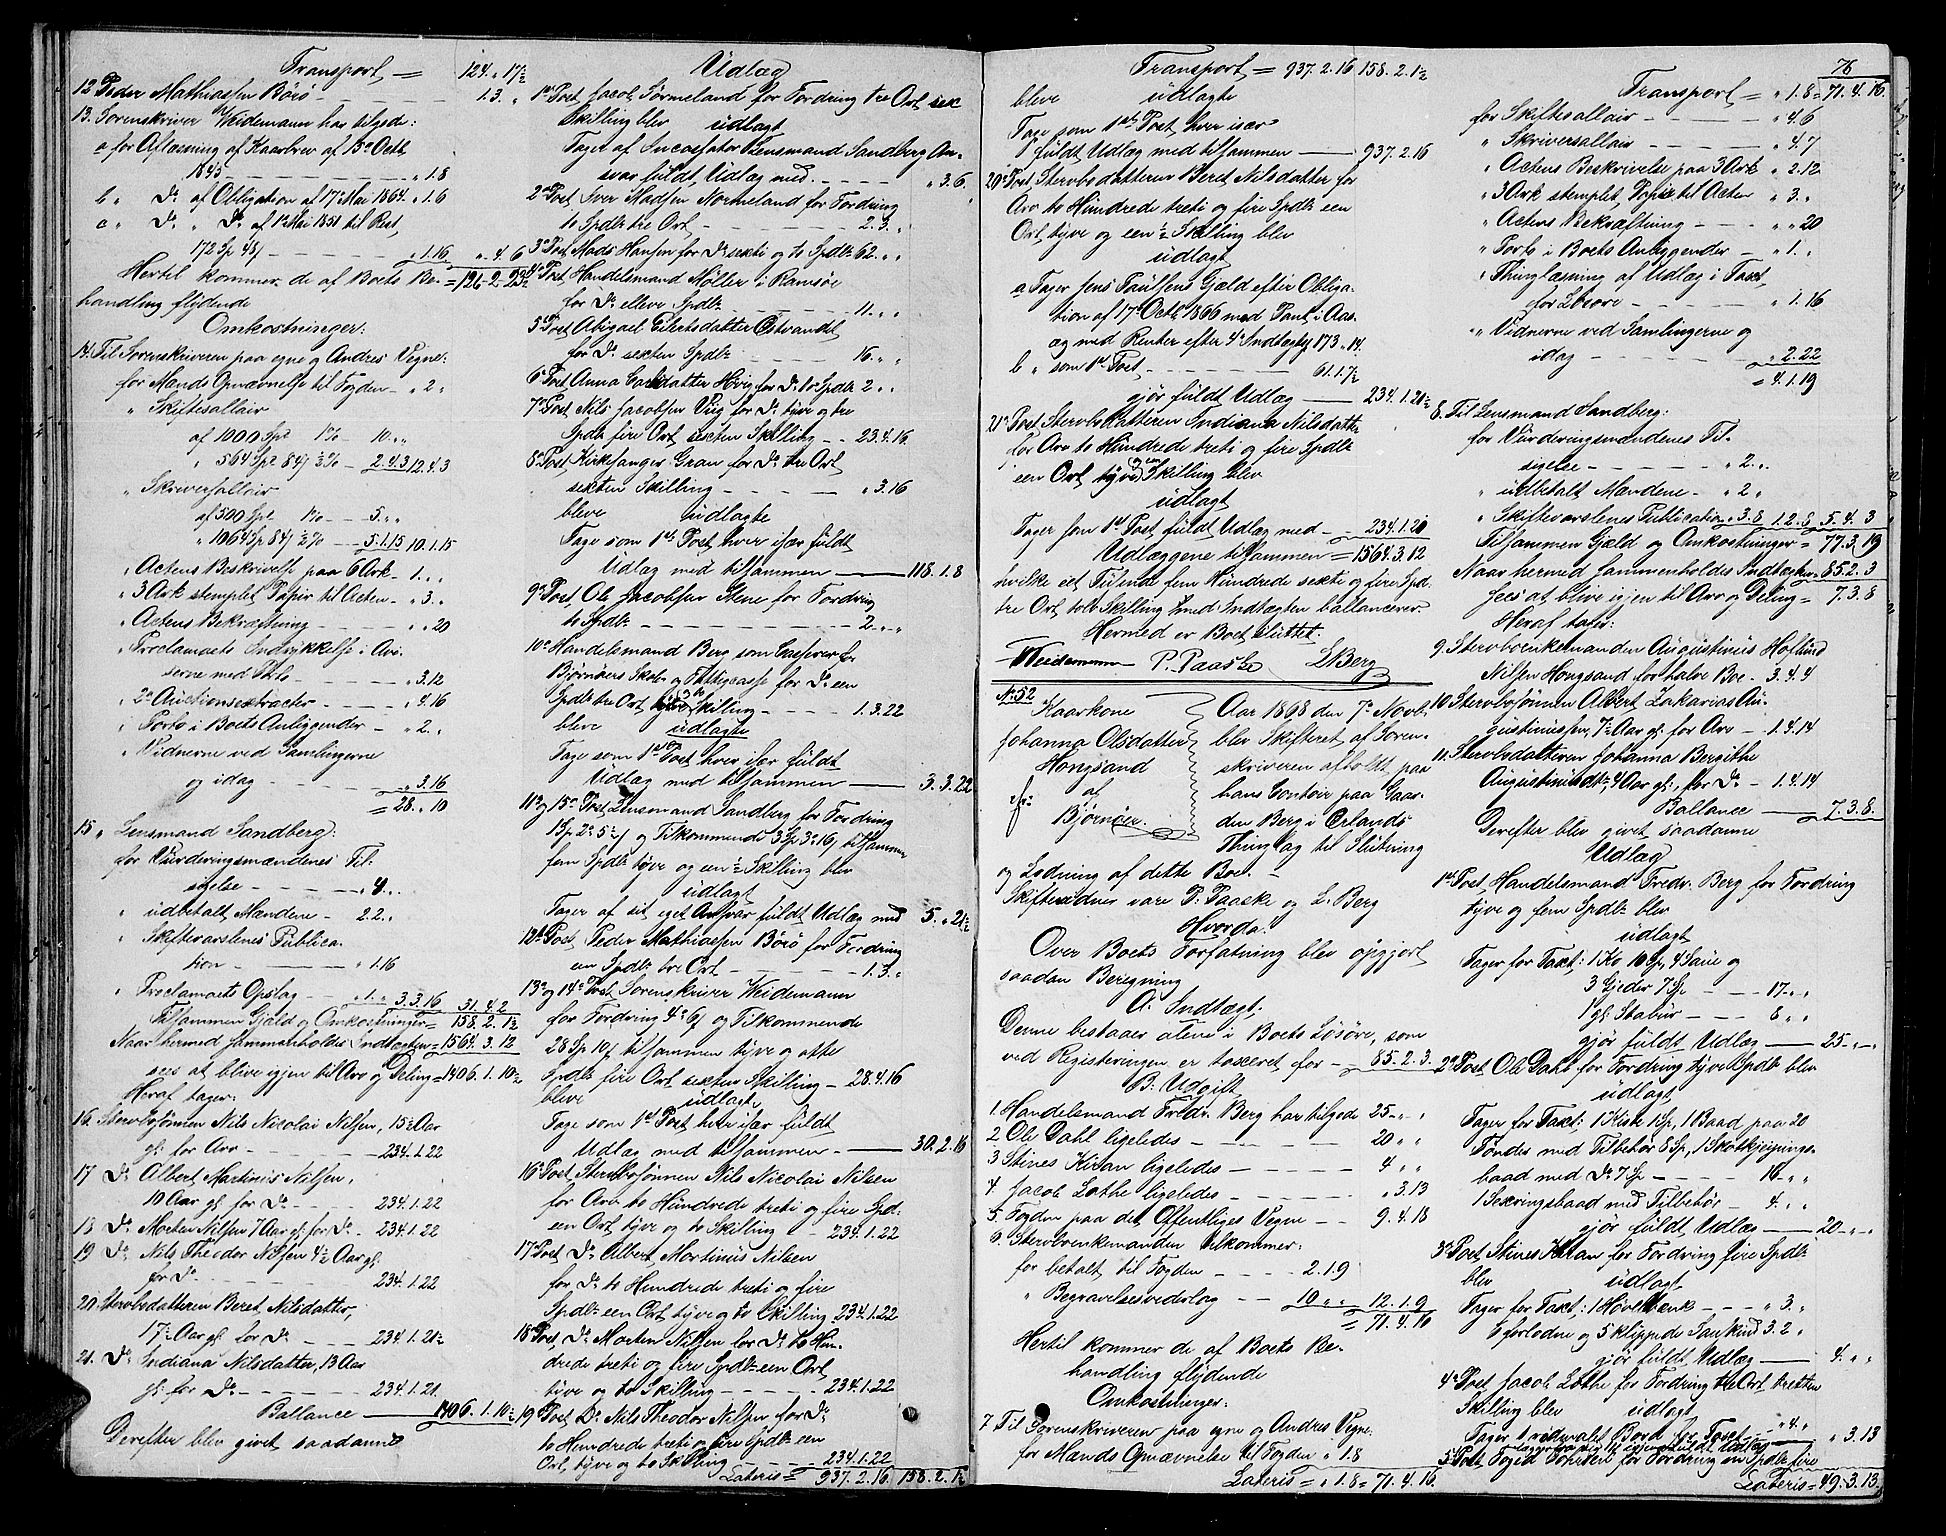 Transport = 124. " 17½
12 Peder Mathiassen Börö - 1.3. "
13. Sorenskriver Weidemann har tilgode:
a for Aflæsning af Kaarbrev af 13de Octb
1845 - " 1.8
b " Do af Obligation af 17de Mai 1864 " 1.6
c " Do " Do af 1ste Mai 1851 til Rest,
172 Sp 48 s - " 1.16 " 4. 6
Hertil kommer de af Boets Be- = 126. 2. 23½
handling flydende
Omkostninger:
14. Til Sorenskriveren paa egne og Andres Vegne:
for Mænds Opnævnelse til Fogden - " 2 "
" Skiftesallair
af 1000 Spd 1% - 10. " "
" 564 Spd 84 s ½% - 2.4.3 12.4.3
" Skriversallair
af 500 Spd 1% - 5. " "
" 1064 Sp 84 s ½% - 5.1.15 10.1.15
" Actens Beskrivelse paa 6 Ark - 1. " "
" 3 Ark stemplet Papir til Acten - " 3. "
" Actens Bekræftning - " " 20
" Proclamaets Indrykkelse i Avi-
serne med Porto - " 3.12
" 2de Auctionsextracter - " 4.16
" Porto i Boets Anliggender - " 2. "
" Vidnerne ved Samlingerne
og idag - " 3.16
= 28. " 10
15 " Lensmand Sandberg:
for Vurderingsmændenes Til-
sigelse - " 4. "
" udbetalt Mændene - 2.2. "
" Skiftevarslenes Publica-
tion - " 1.16
" Proclamaets Opslag - " 1. " 3.3.16 31.4.2
Tilsammen Gjæld og Omkostninger = 158. 2. 1½
Naar hermed sammenholdes Indtægten = 1564. 3. 12
sees at blive igjen til Arv og Deling = 1406. 1. 10½
Heraf tager:
16. Sterbosönnen Nils Nicolai Nilsen, 15½ Aar
gl. for Arv - 234.1.22
17 Do Albert Martinus Nilsen,
10 Aar gl. for Do - 234.1.22
18 Do Morten Nilsen 7 Aar gl. for Do - 234.1.22
19 Do Nils Theodor Nilsen 4½ Aar gl.
for Do - 234.1.22
20 Sterbodatteren Beret Nilsdatter,
17½ Aar gl. for Do - 234.1.21½
21. Do Indiana Nilsdatter, 13 Aar
gl. for Do - 234.1.21.
Ballance - 1406. 1. 10½
Derefter blev givet saadanne
Udlæg
1ste Post Jacob Sørmeland for Fordring tre Ort sex
Skilling blev udlagt
Tager af Incassator Lensmand Sandberg An-
svar fuldt Udlæg med - " 3. 6.
2den Post Iver Madsen Normeland for Fordring
to Spdlr tre Ort - 2. 3. "
3die Post Mads Hansen for Do sexti og to Spdlr 62. " "
4de Post Handelsmand Møller i Ramsøe
for Do elleve Spdlr - 11. " "
5te Post Abigael Eilertsdatter Østvandet
for Do sexten Spdlr - 16. " "
6te Post Anna Carlsdatter Hvig for Do to Spdlr 2 " "
7de Post Nils Jacobsen Viig for Do tyve og tre
Spdlr fire Ort sexten Skilling - 23.4.16
8de Post Kirkesanger Gran for Do tre Ort
sexten Skilling - " 3.16
bleve udlagte
Tage som 1ste Post hver især fuldt
Udlæg med tilsammen - 118. 1. 8
9de Post, Ole Jacobsen Stene for Fordring
to Spdlr - 2. " "
10de Handelsmand Berg som Casserer for
Bjørnørs Skole og Fattigcasse for Do een
Spdlr tre Ort tyve to Skilling - 1. 3. 22
bleve udlagte
Tage som 1ste Post hver især fuldt
Udlæg med tilsammen - 3. 3. 22
11te og 15de Post Lensmand Sandberg for Fordring
1 Sp 2 " 5½ s og Tilkommende 3 Sp 3 " 16 s tilsammen
fem Spdlr tyve og een ½ Skilling blev
udlagt
Tager af sit eget Ansvar fuldt Udlæg med 5. " 21½
12te Post, Peder Mathiassen Börö for Fordring
een Spdlr tre Ort - 1. 3. "
13de og 14de Post Sorenskriver Weidemann
for Fordring 4 " 6 s og Tilkommende
28 Sp 10 s tilsammen tyve og otte
Spdlr fire Ort sexten Skilling - 28.4.16
bleve udlagte
Tage som 1ste Post hver især fuldt
Udlæg med tilsammen - 30.2.16
16de Post, Sterbosönnen Nils Nicolai Nilsen
for Arv to Hundrede treti og fire Spd:
een Ort tyve og to Skilling - 234.1.22
17de Post Do Albert Martinus Nilsen
for Do to Hundrede treti og fire
Spdlr een Ort tyve og to Skilling 234.1.22
18de Post, Do Morten Nilsen for Do to Hun-
drede treti og fire Spdlr een Ort
tyve og to Skilling - 234.1.22
19de Post Do Nils Theodor Nilsen for Do
to Hundrede treti og fire Spdlr een
Ort, tyve og to Skilling - 234.1.22
Lateris = 937. 2. 16. 158. 2. 1½
Transport = 937. 2. 16 158. 2. 1½
bleve udlagte
Tage som 1ste Post hver især
fuldt Udlæg med tilsammen - 937. 2. 16
20de Post, Sterbodatteren Beret Nilsdatter for
Arv to Hundrede treti og fire Spdlr een
Ort, tyve og een ½ Skilling blev
udlagt
a Tager Jens Paulsens Gjæld efter Obliga-
tion af 17de Octb 1866 med Pant i Aas-
æg med Renter efter 4de Indtægt 173 " 14.
b " som 1ste Post - 61.1.7½
gjör fuldt Udlæg - 234.1.21½
21de Post Sterbodatteren Indiana Nilsdatter
for Arv to Hundrede treti og fire Spdlr
een Ort tyve og en Skilling blev
udlagt
Tager som 1ste Post fuldt Udlæg med - 234.1.20
Udlæggene tilsammen = 1564. 3. 12
hvilke eet Tusende fem Hundrede sexti og fire Spd.
tre Ort tolv Skilling med Indtægten ballancerer.
Hermed er Boet sluttet.
Weidemann P. Paaske L Berg
No 52
Kaarkone
Johanna Olsdatter
Hongsand
af
Bjørnør.
Aar 1868 den 7de Novb.
blev Skifteret af Soren-
skriveren afholdt paa
hans Contoir paa Gaar-
den Berg i Ørlands
Thinglag til Slutning
og Lodning af dette Boe. -
Skiftevidner vare P. Paaske og L. Berg
Hvorda:
Over Boets Forfatning blev opgjort
saadan Beregning
A. Indtægt:
Denne bestaaer alene i Boets Løsøre, som
ved Registreringen er taxeret for - 85. 2. 3.
B. Udgift
1. Handelsmand Fredr. Berg har tilgode 25 - " "
2 Ole Dahl ligeledes - 20 " "
3 Stines Kiran ligeledes - 4 " "
4. Jacob Lothe ligeledes - " 3.13
5. Fogden paa det Offentliges Vegne - 9.4.18
6. Sterboenkemanden tilkommer:
for betalt til Fogden - 2.1.9
" Begravelsesvederlag - 10 " " 12.1.9
= 71.4.16
Hertil kommer de af Boets Be-
handling flydende
Omkostninger:
7 Til Sorenskriveren paa egne og Andres Vegne
for Mænds Opnævnelse til Fogden " 1.8
Lateris = " 1.8 = 71. 4. 16.
76
Transport = " 1.8 = 71. 4. 16.
for Skiftesallair - " 4.6
" Skriversallair - " 4.7
" Actens Beskrivelse paa 3 Ark " 2.12
" 3 Ark stemplet Papir til Acten " 3. "
" Actens Bekræftning - " " 20
" Porto i Boets Anliggender - " 1. "
" Thinglæsning af Udlæg i Faст,
for Løsøre - " 1.16
" Vidnerne ved Samlingerne og
idag - " 2.22
= 4.1.19
8. Til Lensmand Sandberg:
for Vurderingsmændenes Til-
sigelse - " 2. "
" udbetalt Mændene - " 2 "
" Skiftevarslenes Publication " 3.8 1.2.8 5.4.3
Tilsammen Gjæld og Omkostninger = 77.3.19
Naar hermed sammenholdes Indtægten = 85.2.3
sees at blive igjen til Arv og Deling = 7.3.8
Heraf tager:
9. Sterboenkemanden Augustinus Hoflund
Nilsen Hongsand for halve Boe - 3.4.4
10 Sterbosönnen Albert Zakarias Au-
gustinussen, 7½ Aar gl. for Arv - 1.4.14
11. Sterbodatteren Johanna Bergithe
Augustinusdtr, 4 Aar gl., for Do - 1.4.14
Ballance - 7.3.8.
Derefter blev givet saadanne
Udlæg
1ste Post, Handelsmand Fredr. Berg for Fordring
tyve og fem Spdlr blev
udlagt
Tager for Taxt: 1 Ko 10 Sp, 4 Saue og
3 Gjeder 7 Sp - 17 " "
1 gl. Stabur - 8 " "
gjör fuldt Udlæg - 25 - " -
2den Post Ole Dahl for Fordring tyve Spdlr blev
udlagt
Tager for Taxt: 1 Kiste 1 Sp, 1 Baad paa 20
Tønder med Tilbehör 8 Sp, 1 Skötkjeipings-
baad med Do 7 Sp - 16 " "
1 Sexringsbaad med Tilbehör - 4. " "
gjör fuldt Udlæg - 20 - " -
3die Post, Stines Kiran for Fordring fire Spdlr
blev udlagt
Tager for Taxt: 1 Hövelbænk - " 3. "
6 forlodne og 5 klippede Saueskind 3.2 "
gjör fuldt Udlæg - 4. " "
4de Post Jacob Lothe for Fordring tre Ort tretten
Skilling blev udlagt
Tager 1 rödmalet Bord for Taxt - " 4. "
" 3.13
5te Post Foged for Fordring ni Spdlr fire
Lateris = 49. 3. 13.